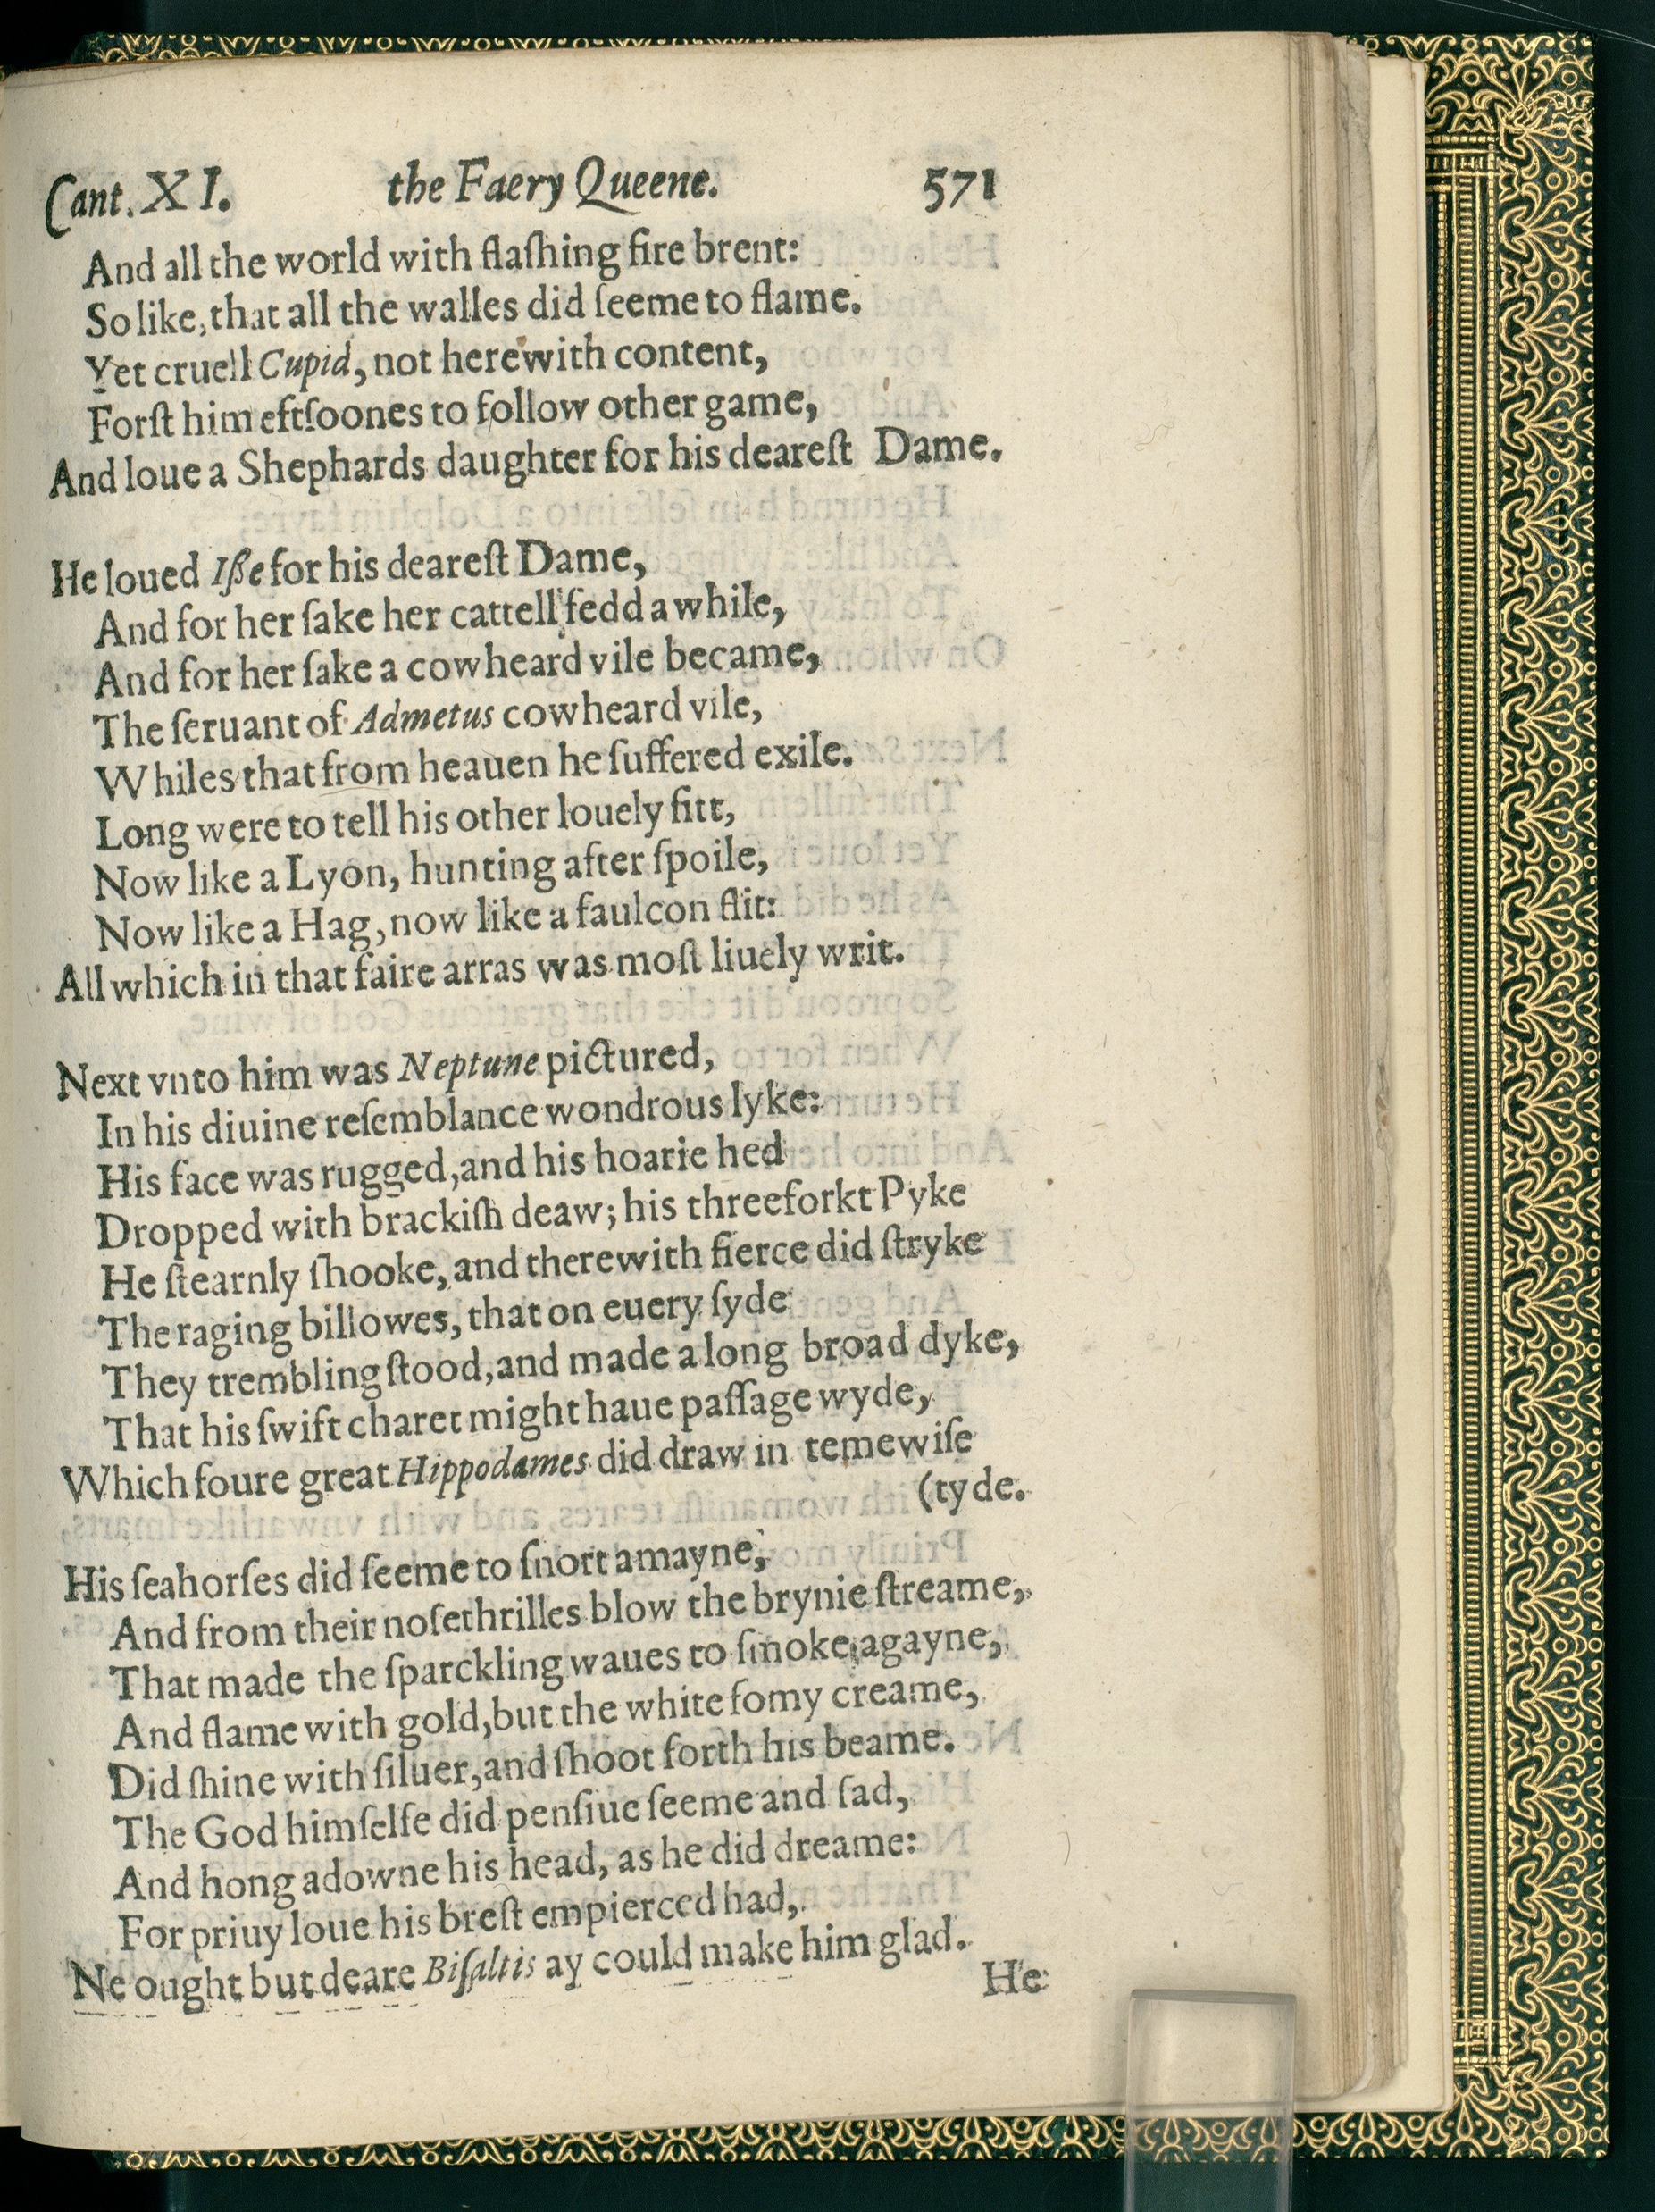 Cant. XI. the Faery Queene. 571
And all the world with flaſhing fire brent:
So like, that all the walles did ſeeme to flame.
Yet cruell Cupid, not herewith content,
Forſt him eftſoones to follow other game,
And loue a Shephards daughter for his deareſt Dame.
He loued Iſſe for his deareſt Dame,
And for her ſake her cattell fedd a while,
And for her ſake a cowheard vile became,
The ſeruant of Admetus cowheard vile,
Whiles that from heauen he ſuffered exile.
Long were to tell his other louely fitt,
Now like a Lyon, hunting after ſpoile,
Now like a Hag, now like a faulcon flit:
All which in that faire arras was moſt liuely writ.
Next vnto him was Neptune pictured,
In his diuine reſemblance wondrous lyke:
His face was rugged, and his hoarie hed
Dropped with brackiſh deaw; his threeforkt Pyke
He ſtearnly ſhooke, and therewith fierce did ſtryke
The raging billowes, that on euery ſyde
They trembling ſtood, and made a long broad dyke,
That his ſwift charet might haue paſſage wyde,
Which foure great Hippodames did draw in temewiſe
(tyde.
His ſeahorſes did ſeeme to ſnort amayne,
And from their noſethrilles blow the brynie ſtreame,
That made the ſparckling waues to ſmoke agayne,
And flame with gold, but the white fomy creame,
Did ſhine with ſiluer, and ſhoot forth his beame.
The God himſelfe did penſiue ſeeme and ſad,
And hong adowne his head, as he did dreame:
For priuy loue his breſt empierced had,
Ne ought but deare Biſaltis ay could make him glad.
He